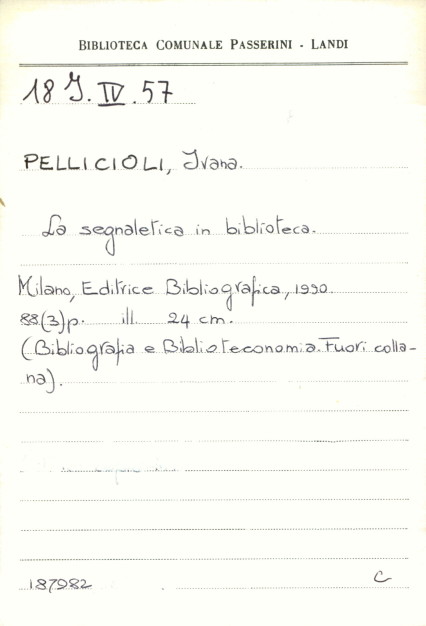 BIBLIOTECA COMUNALE PASSERINI - LANDI
18 J. IV. 57
PELLICIOLI, Ivana.
La segnaletica in biblioteca.
Milano, Editrice Bibliografica, 1990.
88(3)p. ill. 24 cm.
(Bibliografia e Biblioteconomia. Fuori colla-
na).
187982
C